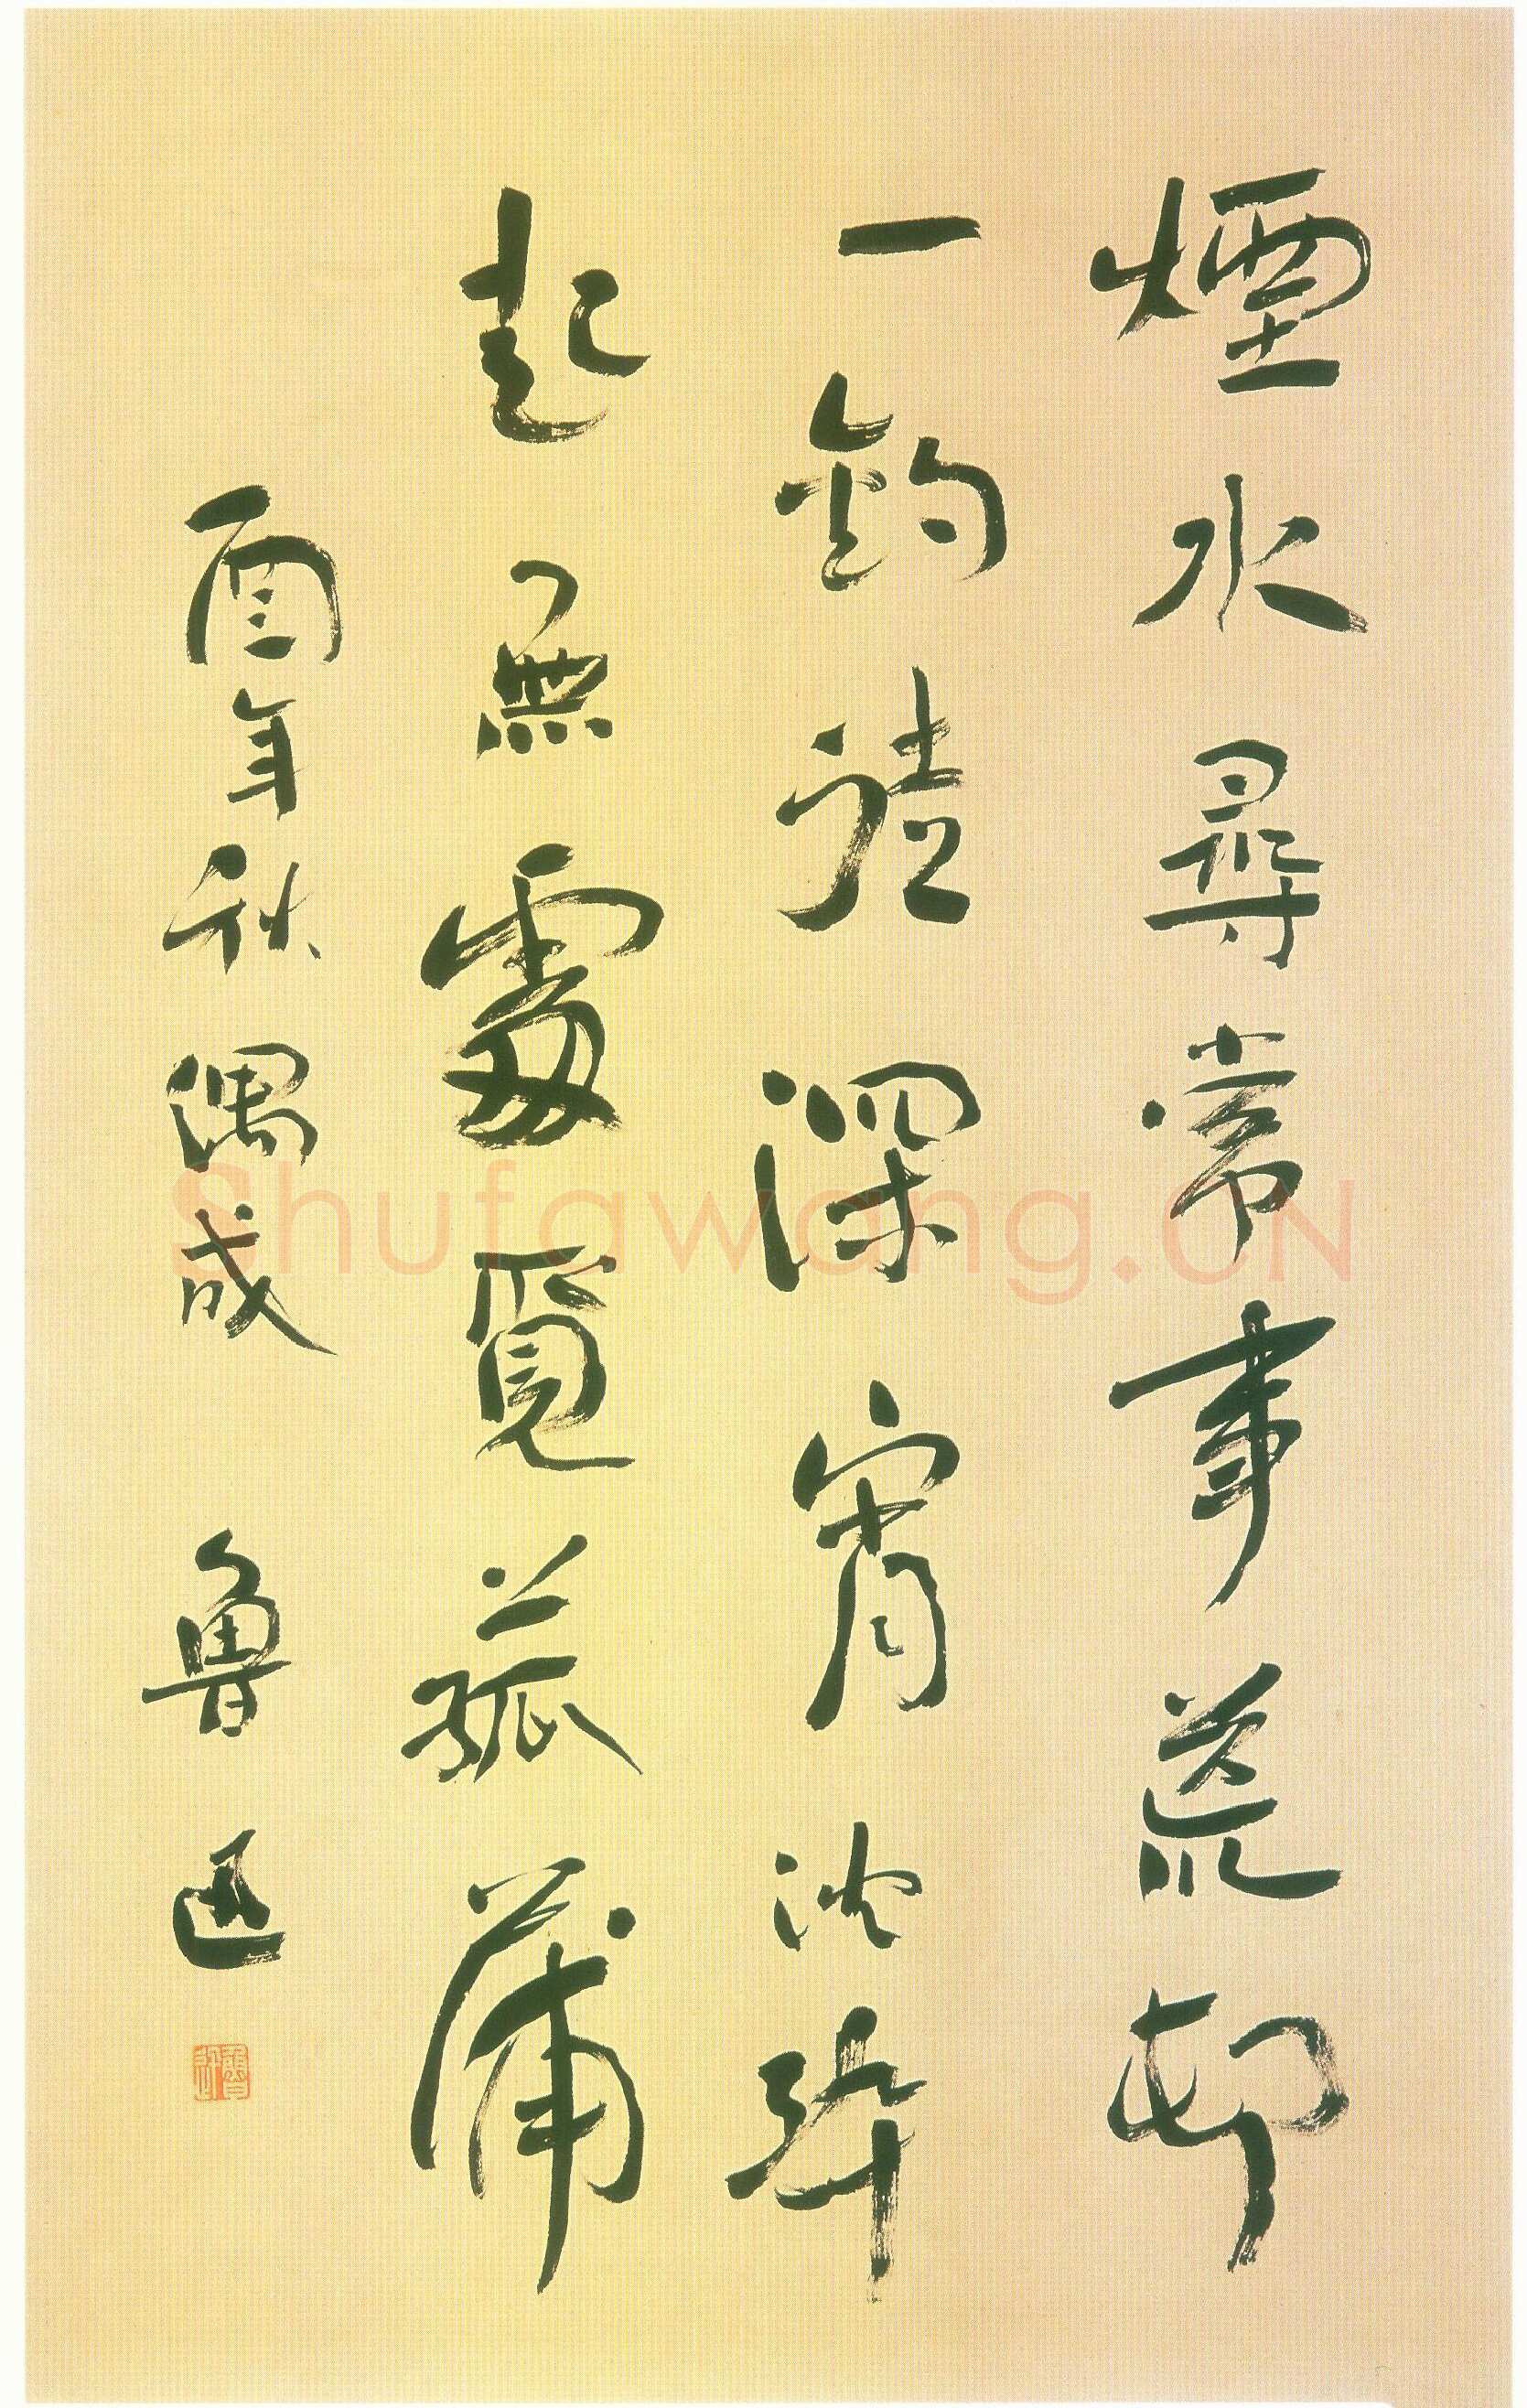 煙水尋常事荒邨
一釣徒深宵沈醉
起無處覓菰蒲
酉年秋偶成 魯迅
魯迅
Shufawang.CN